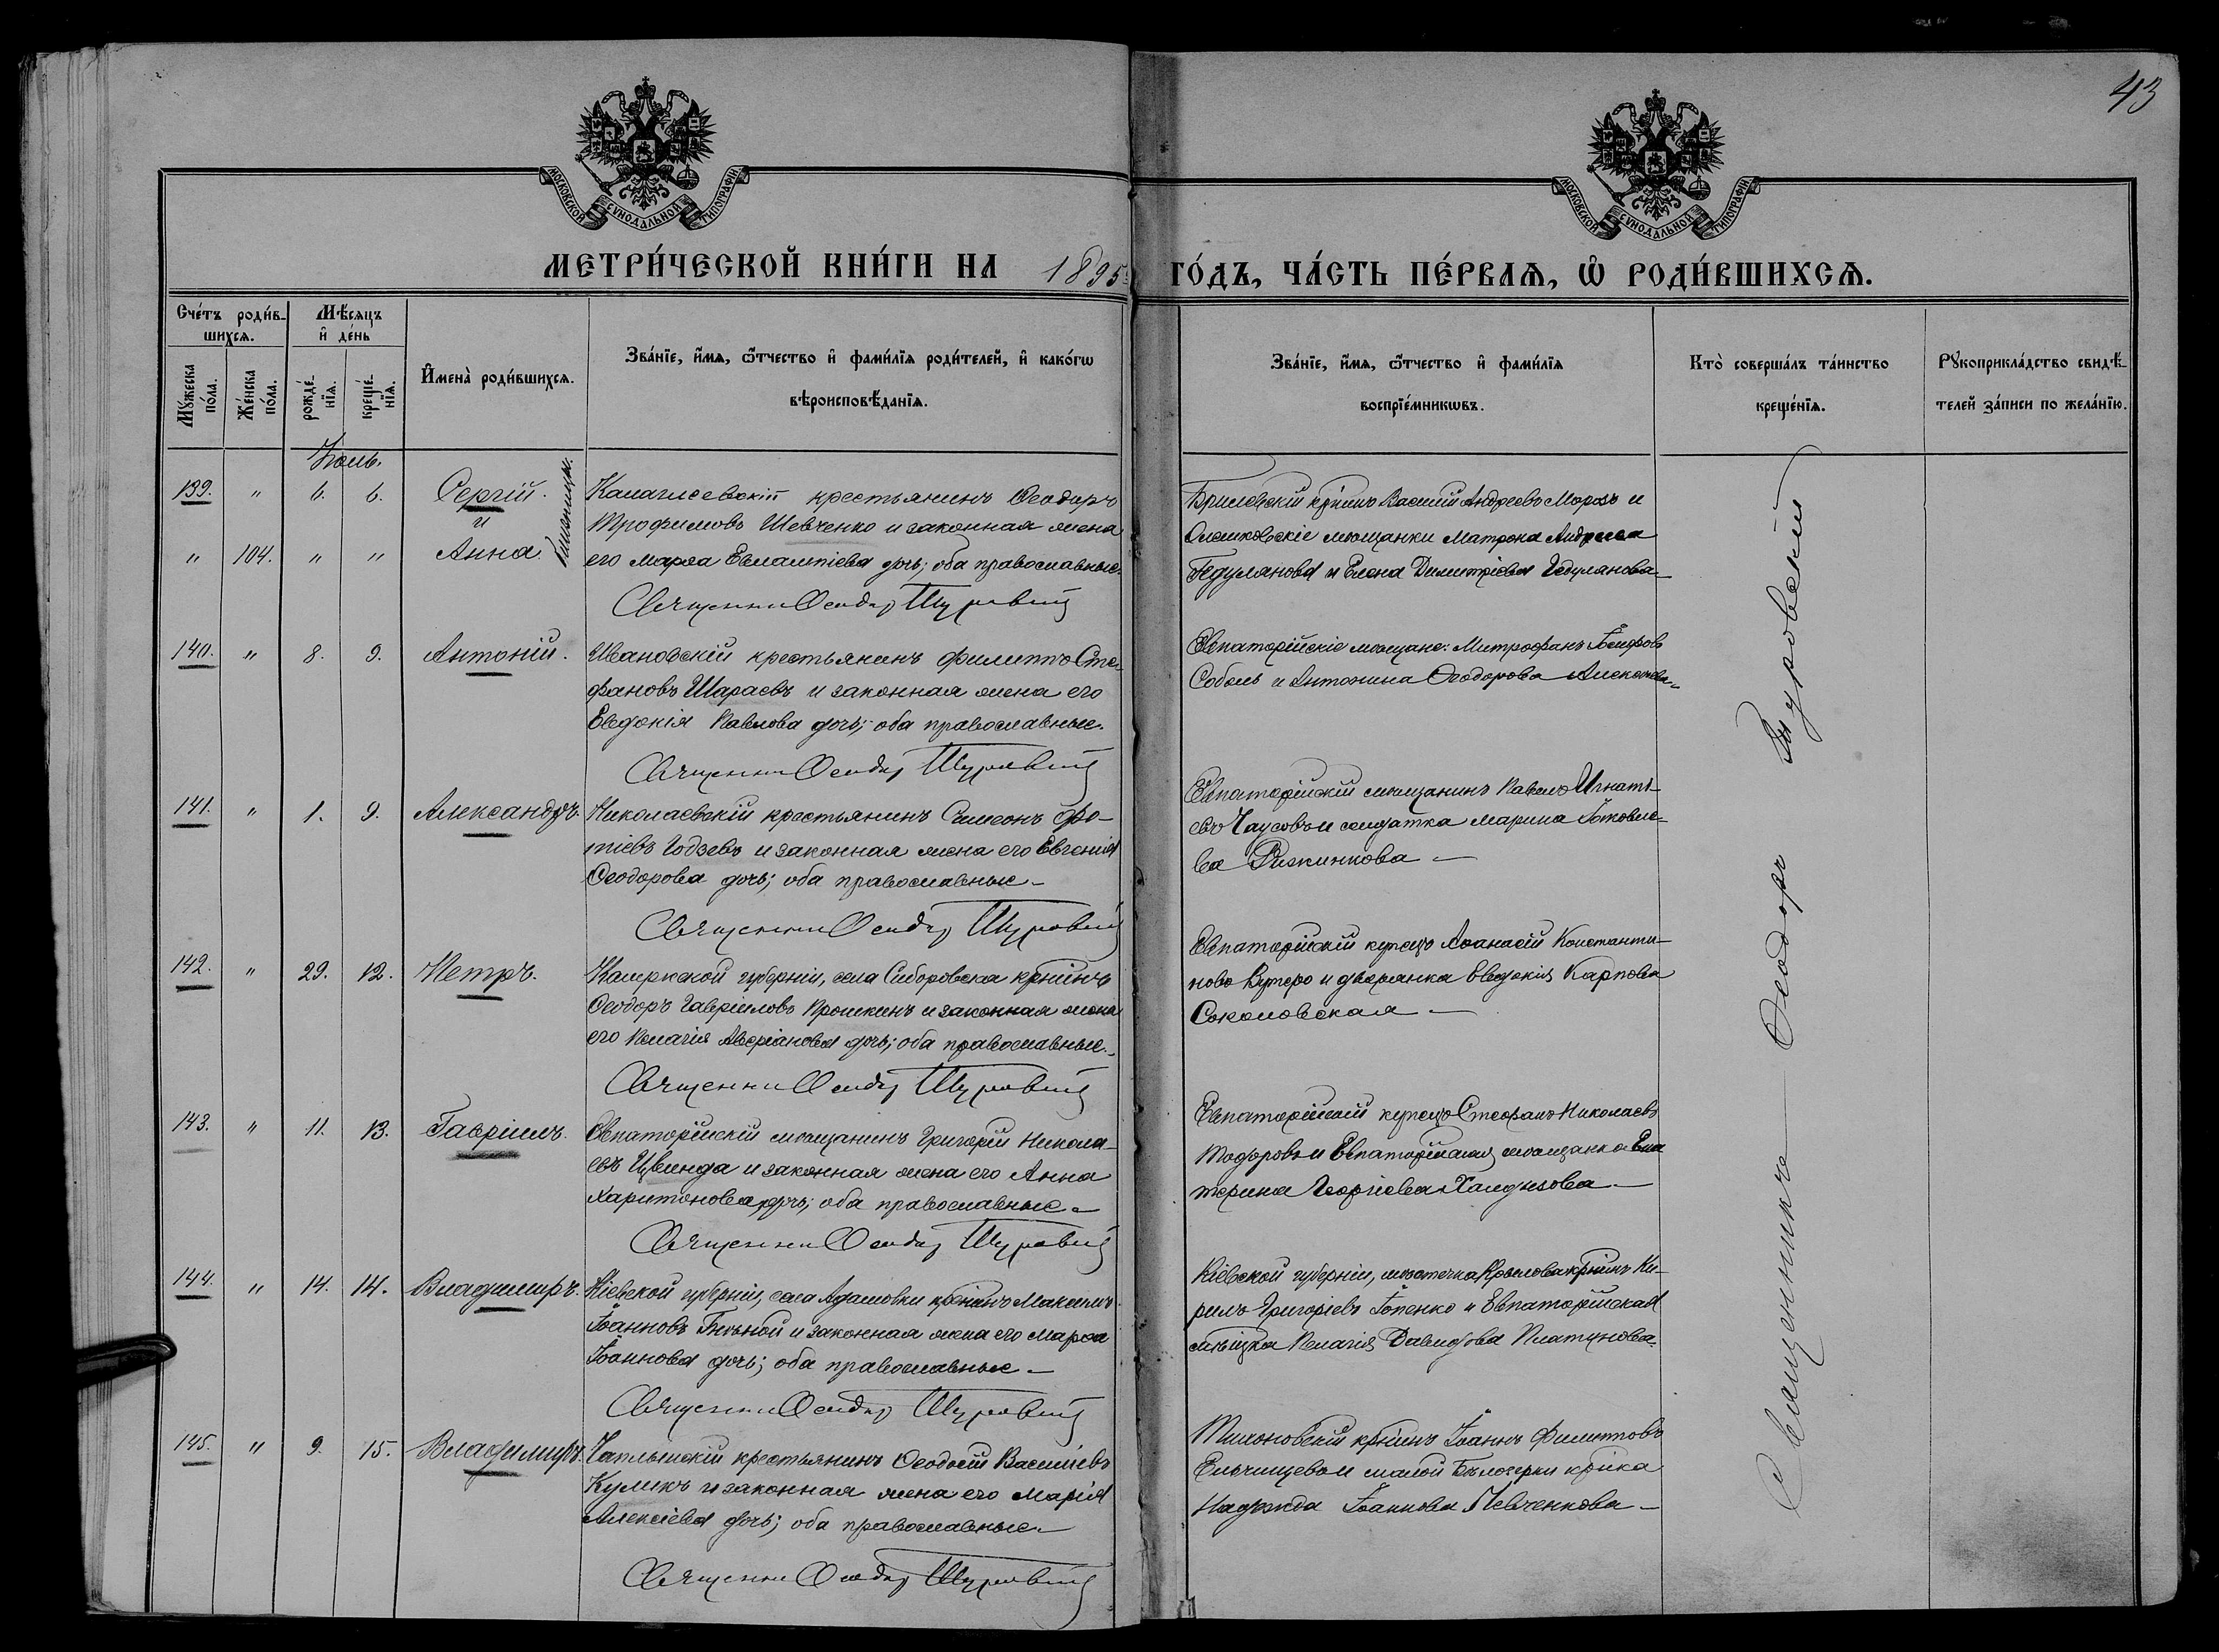 43
МОСКОВСКОЙ СѴНОДАЛЬНОЙ ТИПОГРАФІИ
МОСКОВСКОЙ СѴНОДАЛЬНОЙ ТИПОГРАФІИ
МЕТРИ́ЧЕСКОЙ КНИ́ГИ НА 1895 ГО́ДЪ, ЧА́СТЬ ПЕ́РВАѦ, Ѡ҆ РОДИ́ВШИХСѦ.
Сче́тъ роди́в-
шихсѧ.
Мꙋ́жеска по́ла.
Же́нска по́ла.
Мѣ́сѧцъ
и҆ де́нь
рожде́-
нїѧ.
креще́-
нїѧ.
И҆мена̀ роди́вшихсѧ.
Зва́нїе, и҆́мѧ, ѻ҆́тчество и҆ фами́лїѧ роди́телей, и҆ како́гѡ
вѣроисповѣ́данїѧ.
Зва́нїе, и҆́мѧ, ѻ҆́тчество и҆ фами́лїѧ
воспрїе́мникѡвъ.
Кто̀ соверша́лъ та́инство
креще́нїѧ.
Рꙋкоприкла́дство свидѣ́-
телей за́писи по жела́нїю.
Іюль.
139. " 6. 6. Сергій
и
" 104. " " Анна.
близнецы.
крестьянинъ Ѳеодоръ
Трофимовъ Шевченко и законная жена
его Марѳа Евлампіева дочь; оба православные.
Священник Ѳеодор Щуровскій
Бриловскій кр҃нинъ Василій Андреевъ Морозъ и
Олешковскіе мѣщанки Матрона
Гедуляновa и Елена Димитріева Гедулянова
140. " 8. 9. Антоній.
Ивановскій крестьянинъ Филиппъ Сте-
фановъ Шараевъ и законная жена его
Евдокія Павлова дочь; оба православные.
Священник Ѳеодор Щуровскій
Евпаторійскіе мѣщане: Митрофанъ
Соболь и Антонина Ѳеодорова
141. " 1. 9. Александръ.
Николаевскій крестьянинъ Симеонъ Фо-
тіевъ Годзевъ и законная жена его Евгенія
Ѳеодорова дочь; оба православные
Священник Ѳеодор Щуровскій
Евпаторійскій мѣщанинъ Павелъ Игнатъ-
евъ Чаусовъ и солдатка Марина Іаковле-
ва
142. " 29. 12. Петръ.
губерніи, села кр҃нинъ
Ѳеодоръ Гавріиловъ Прошкинъ и законная жена
его Пелагія Аверіанова дочь; оба православные.
Священник Ѳеодор Щуровскій
Евпаторійскій купецъ Аѳанасій Константи-
новъ и дворянка Евдокія Карпова
Соколовская
143. " 11. 13. Гавріилъ.
Евпаторійскій мѣщанинъ Григорій Никола-
евъ Цвинда и законная жена его Анна
Харитонова дочь; оба православные
Священник Ѳеодор Щуровскій
Евпаторійскій купецъ Стефанъ Николаевъ
Тодоровъ и Евпаторійская мѣщанка Ека
терина Георгіева
144. " 14. 14. Владимиръ.
Кіевской губерніи, села Адамовки кр҃нинъ Максимъ
Іоанновъ и законная жена его Марѳа
Іоаннова дочь; оба православные
Священник Ѳеодор Щуровскій
Кіевской губерніи, мѣстечка Крылова кр҃нинъ Ки-
рилъ Григоріевъ и Евпаторійская
Пелагія Давидова Платунова
145. " 9. 15. Владимиръ.
крестьянинъ Ѳеодосій Василіевъ
Куликъ и законная жена его Марія
Алексіева дочь; оба православные
Священник Ѳеодор Щуровскій
Тихоновскій кр҃нинъ Іоаннъ Филипповъ
и малой Бѣлозерки кр҃нка
Надежда Іоаннова Певченкова
Священникъ Ѳеодоръ Щуровскій